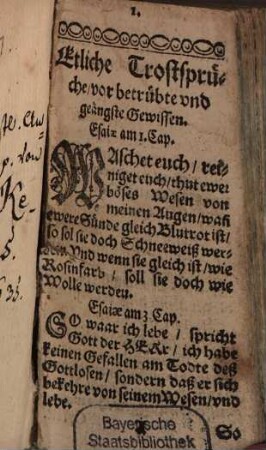 1.
Etliche Trostsprü-
che/ vor betrübte vnd
geängste Gewissen.
Esaiæ am 1. Cap.
WAschet euch/ rei-
niget euch/ thut ewer
böses Wesen von
meinen Augen/ wañ
ewere Sünde gleich Blutrot ist/
so sol sie doch Schneeweiß wer-
den. Vnd wenn sie gleich ist/ wie
Rosinfarb/ soll sie doch wie
Wolle werden.
Esaiæ am 3. Cap.
SO waar ich lebe/ spricht
Gott der HERr/ ich habe
keinen Gefallen am Todte deß
Gottlosen/ sondern daß er sich
bekehre von seinem Wesen/ vnd
lebe.
So
Bayerische
Staatsbibliothek